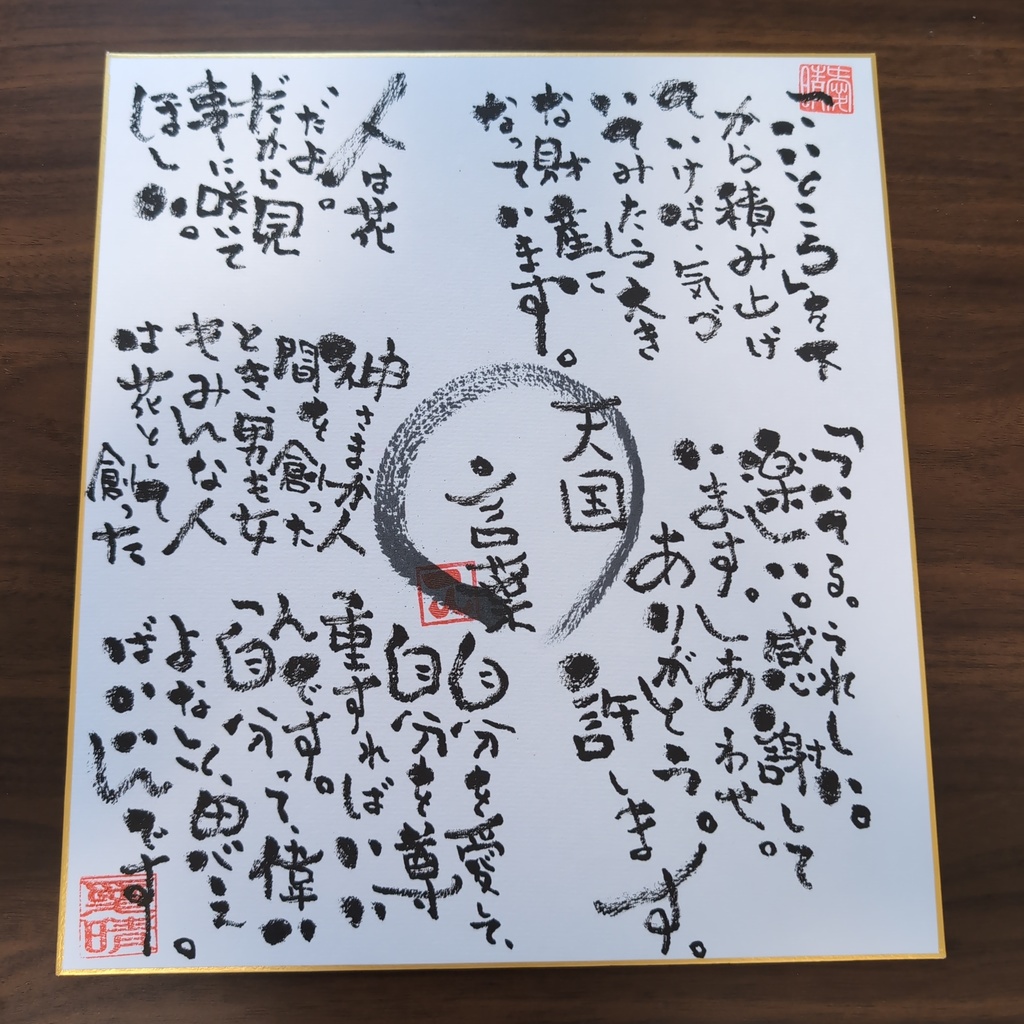 「いいところ」を下
から積み上げ
ていけば、気づ
いてみたら大き
な財産に
なっています。
「ついてる。うれしい。
楽しい。感謝して
います。しあわせ。
ありがとう。
許します。
天国
言葉
人は花
だよ。
だから見
事に咲いて
ほしい。
神さまが人
間を創った
とき、男も女
もみんな人
は花として
創った
自分を愛して、
自分を尊
重すればいい
んです。
「自分って、偉い
よな」と、思え
ばいいんです。